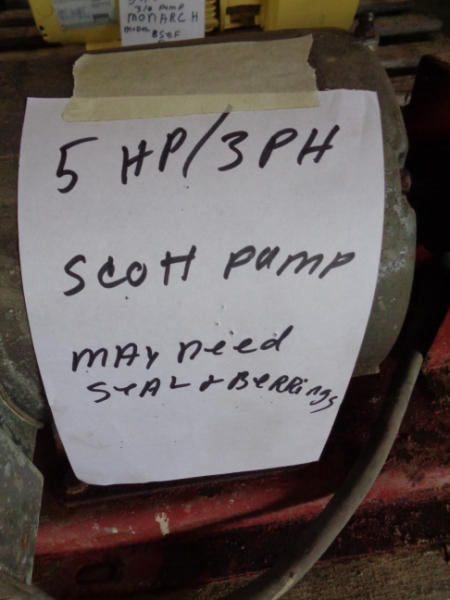 3/0 PUMP
MONARCH
MODEL BSEF
5 HP/3PH
SCOTT PUMP
MAY Need
SEAL & BERRings